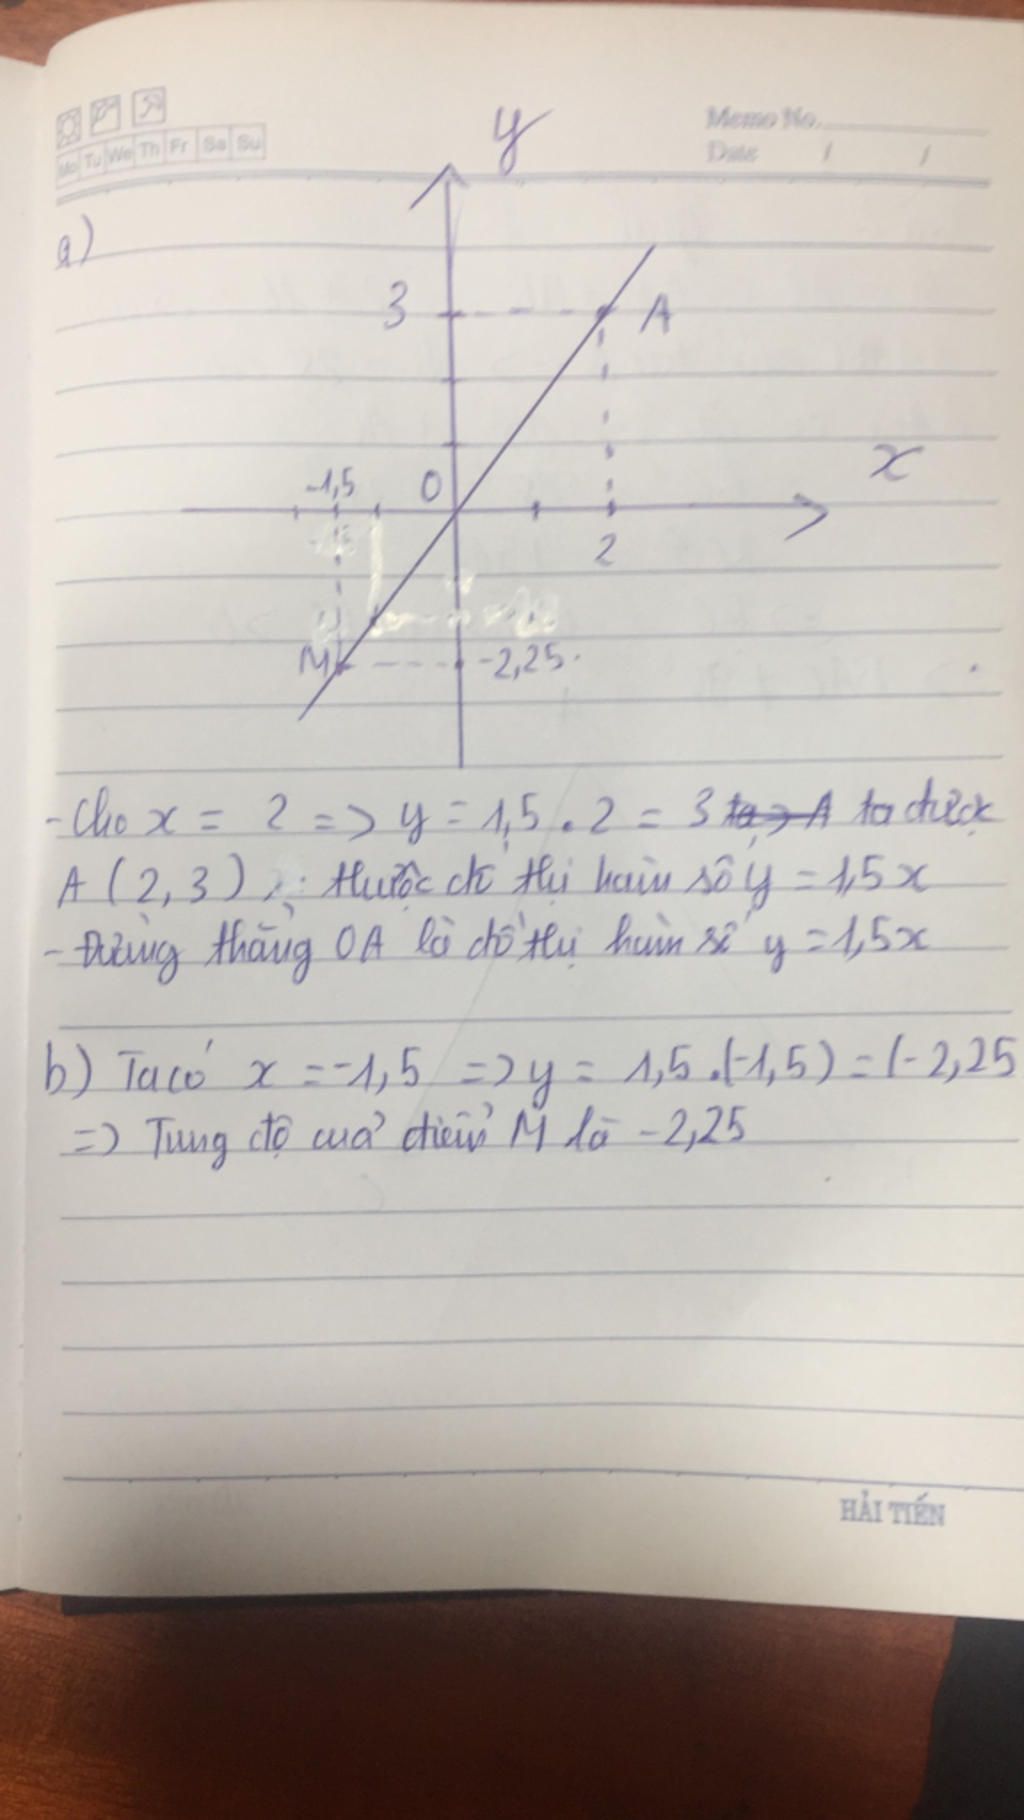 Mo Tu We Th Fr Sa Su
Memo No.
Date / /
y
a)
3
A
x
-1,5
0
2
M
-2,25
- Cho x = 2 => y = 1,5 . 2 = 3 ta được
A ( 2, 3 ) thuộc đồ thị hàm số y = 1,5x
- Đường thẳng OA là đồ thị hàm số y = 1,5x
b) Ta có x = -1,5 => y = 1,5 .(-1,5) = (-2,25
=> Tung độ của điểm M là -2,25
HẢI TIẾN